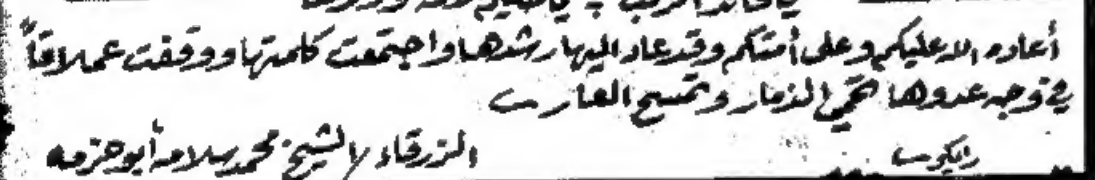 أعاده الله عليكم وعلى أمتكم وقد عاد إليها رشدها واجتمعت كلمتها ووقفت عملاقاً
في وجه عدوها تحمي الذمار وتمسح العار
الزرقاء الشيخ محمد سلامه أبو حزمه